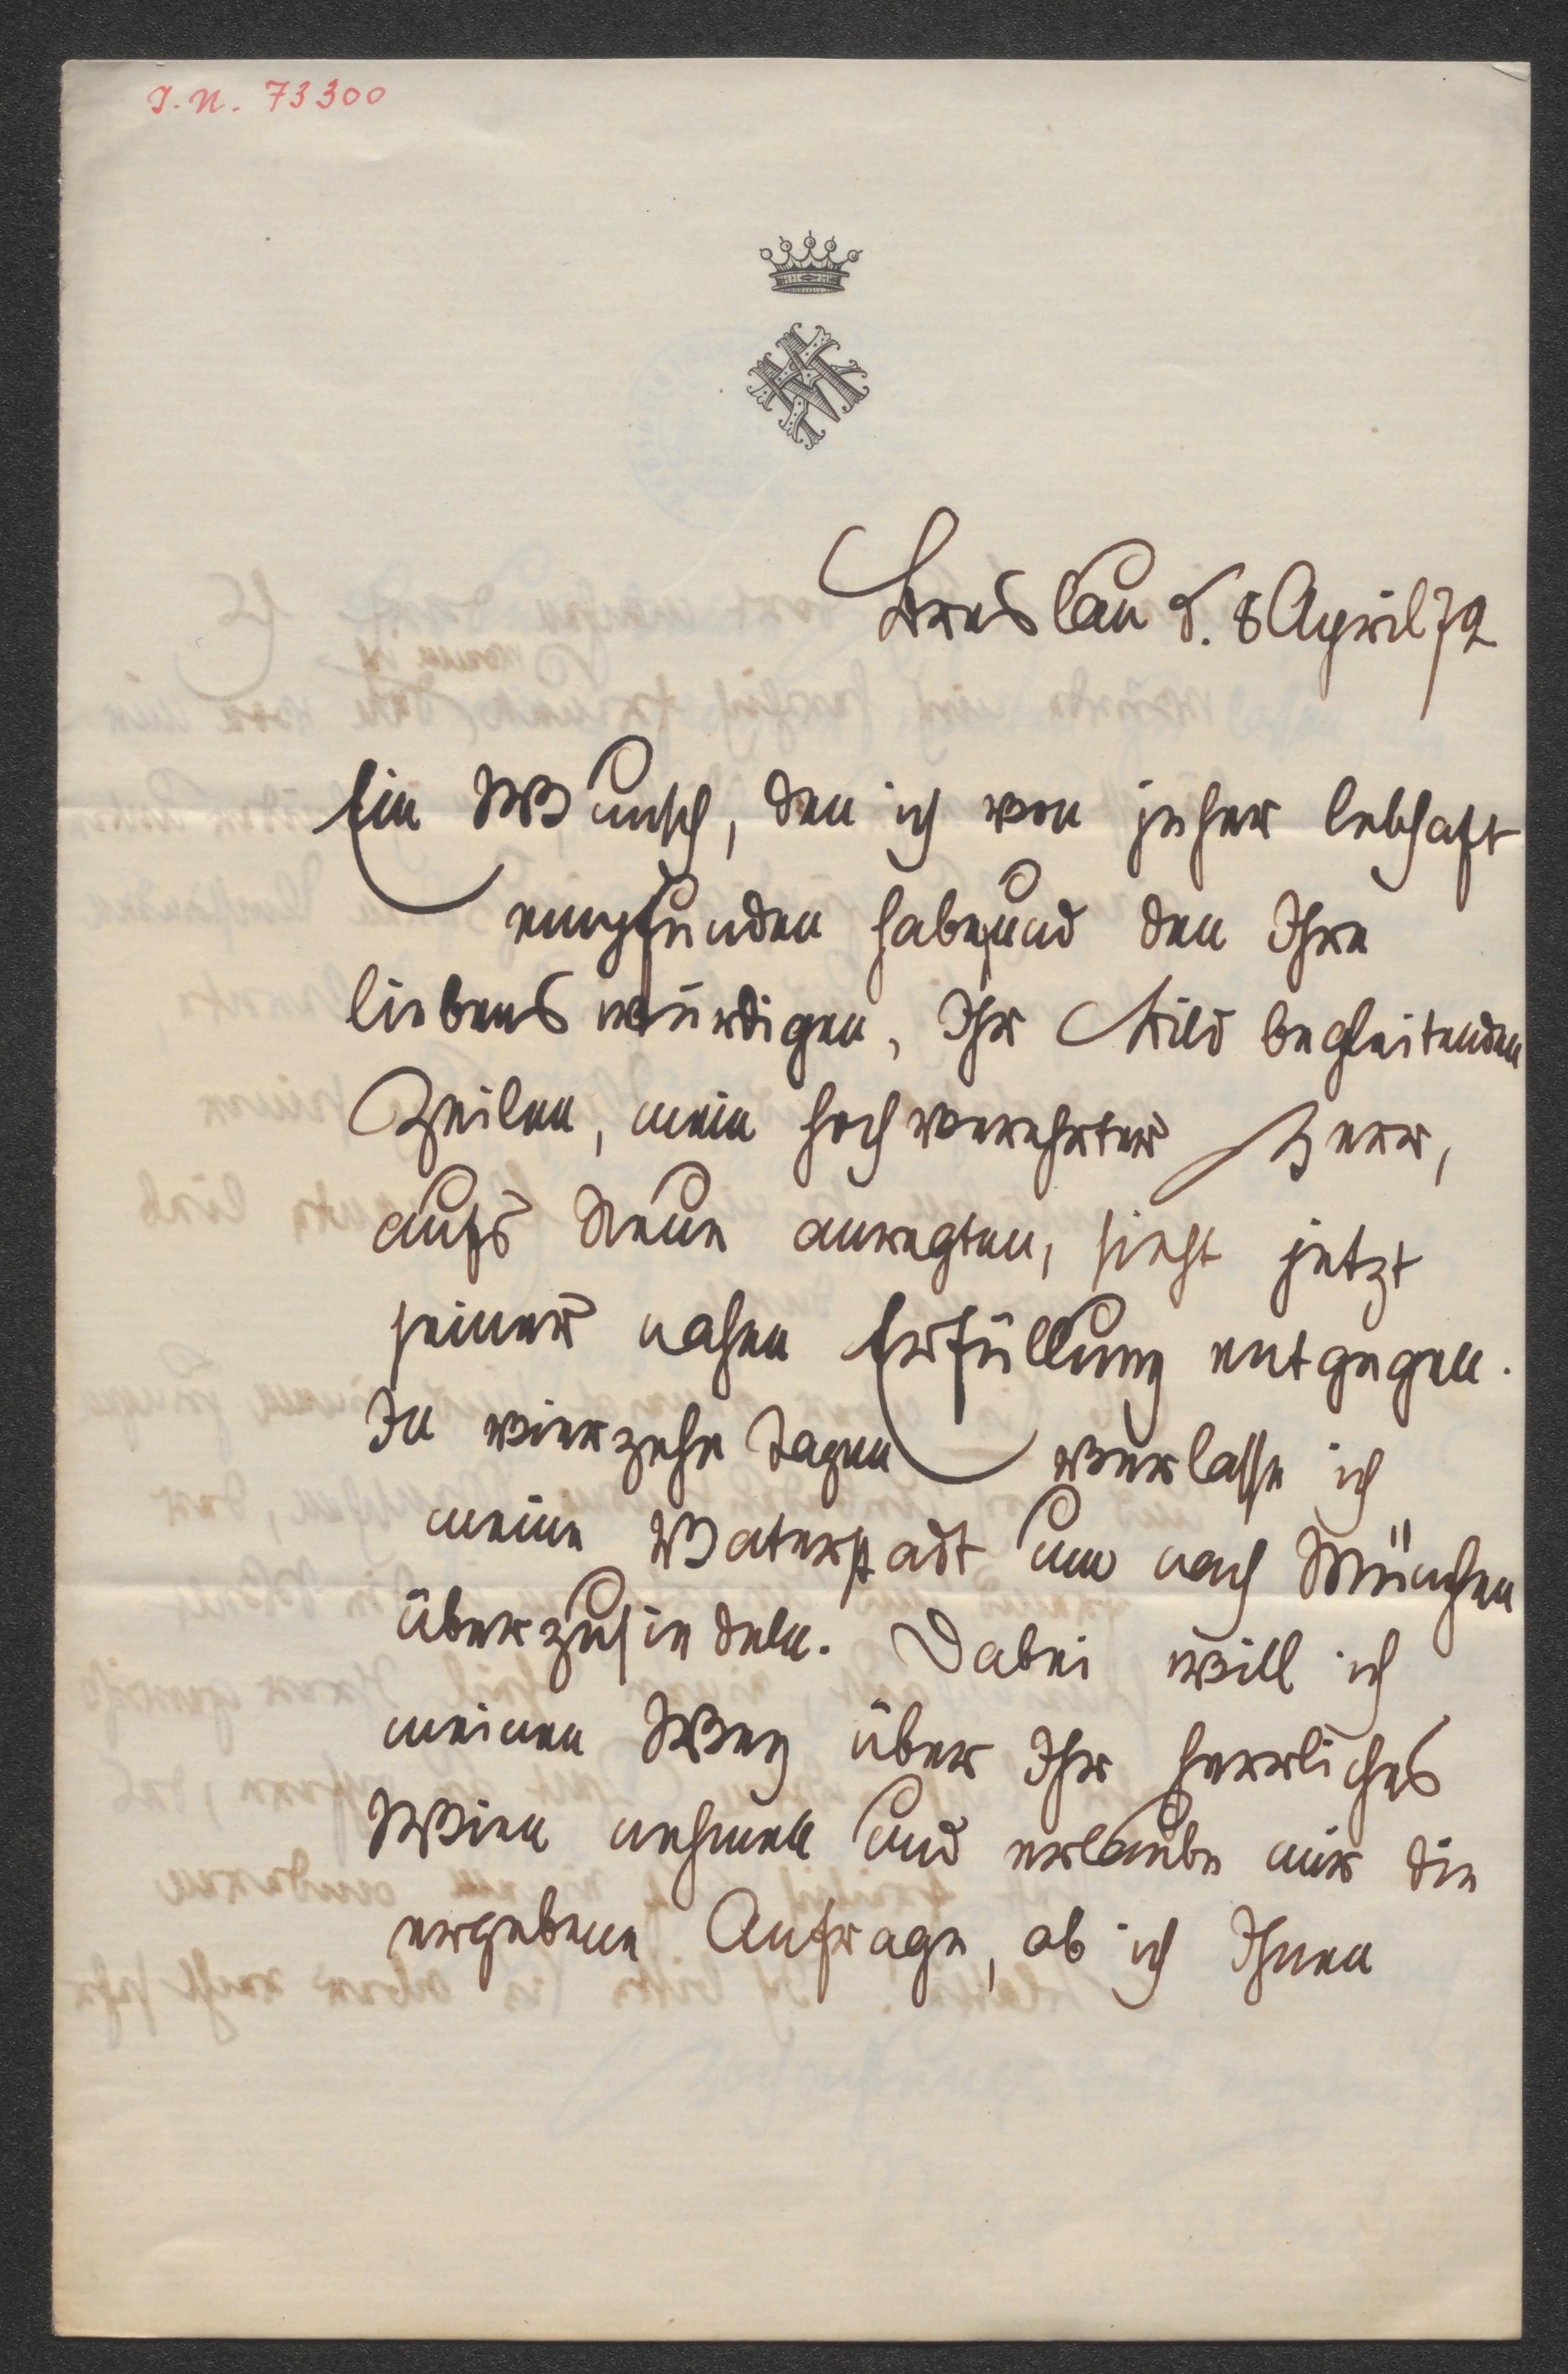 I.N. 73300
Breslau d. 8 April 72
Ein Wunsch, den ich von jeher lebhaft
empfunden habe, und den Ihre
liebenswürdigen, Ihr Bild begleitenden
Zeilen, mein hochverehrter Herr,
aufs Neue anregten, sieht jetzt
seiner nahen Erfüllung entgegen.
In vierzehn Tagen verlasse ich
meine Vaterstadt um nach München
überzusiedeln. Dabei will ich
meinen Weg über Ihr herrliches
Wien nehmen und erlaube mir die
ergebene Anfrage, ob ich Ihnen